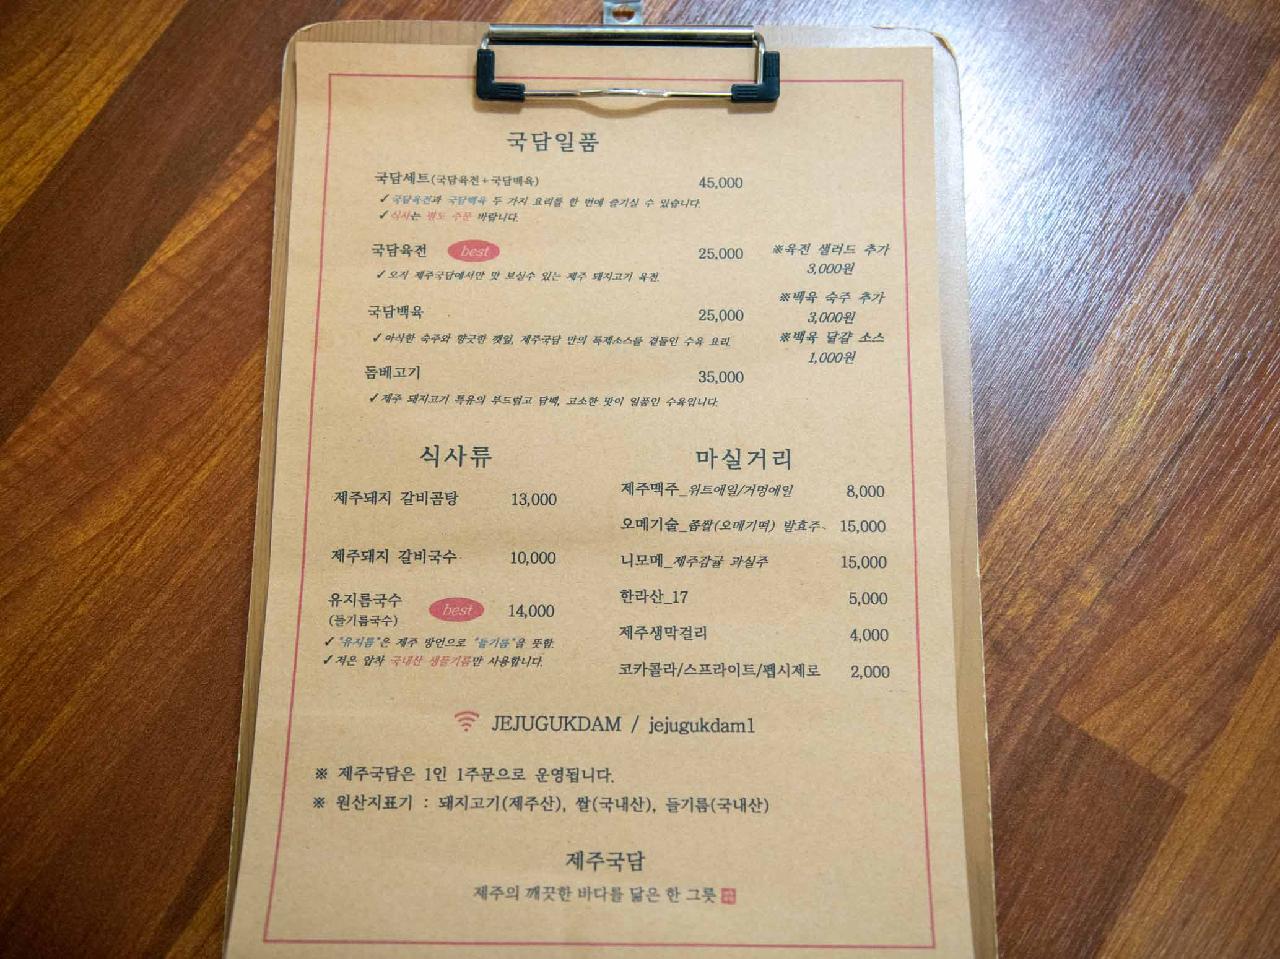 국담일품
국담세트(국담육전+국담백육) 45,000
✓국담육전과 국담백육 두 가지 요리를 한 번에 즐기실 수 있습니다.
✓식사는 별도 주문 바랍니다.
국담육전 best 25,000
✓오직 제주국담에서만 맛 보실수 있는 제주 돼지고기 육전.
※육전 샐러드 추가
3,000원
국담백육 25,000
✓아삭한 숙주와 향긋한 깻잎, 제주국담 만의 특제소스를 곁들인 수육 요리.
※백육 숙주 추가
3,000원
※백육 달걀 소스
1,000원
돔베고기 35,000
✓제주 돼지고기 특유의 부드럽고 담백, 고소한 맛이 일품인 수육입니다.
식사류
제주돼지 갈비곰탕 13,000
제주돼지 갈비국수 10,000
유지름국수 best 14,000
(들기름국수)
✓"유지름"은 제주 방언으로 "들기름"을 뜻함.
✓저온 압착 국내산 생들기름만 사용합니다.
마실거리
제주맥주_위트에일/거멍에일 8,000
오메기술_좁쌀(오메기떡) 발효주 15,000
니모메_제주감귤 과실주 15,000
한라산_17 5,000
제주생막걸리 4,000
코카콜라/스프라이트/펩시제로 2,000
JEJUGUKDAM / jejugukdam1
※ 제주국담은 1인 1주문으로 운영됩니다.
※ 원산지표기 : 돼지고기(제주산), 쌀(국내산), 들기름(국내산)
제주국담
제주의 깨끗한 바다를 닮은 한 그릇